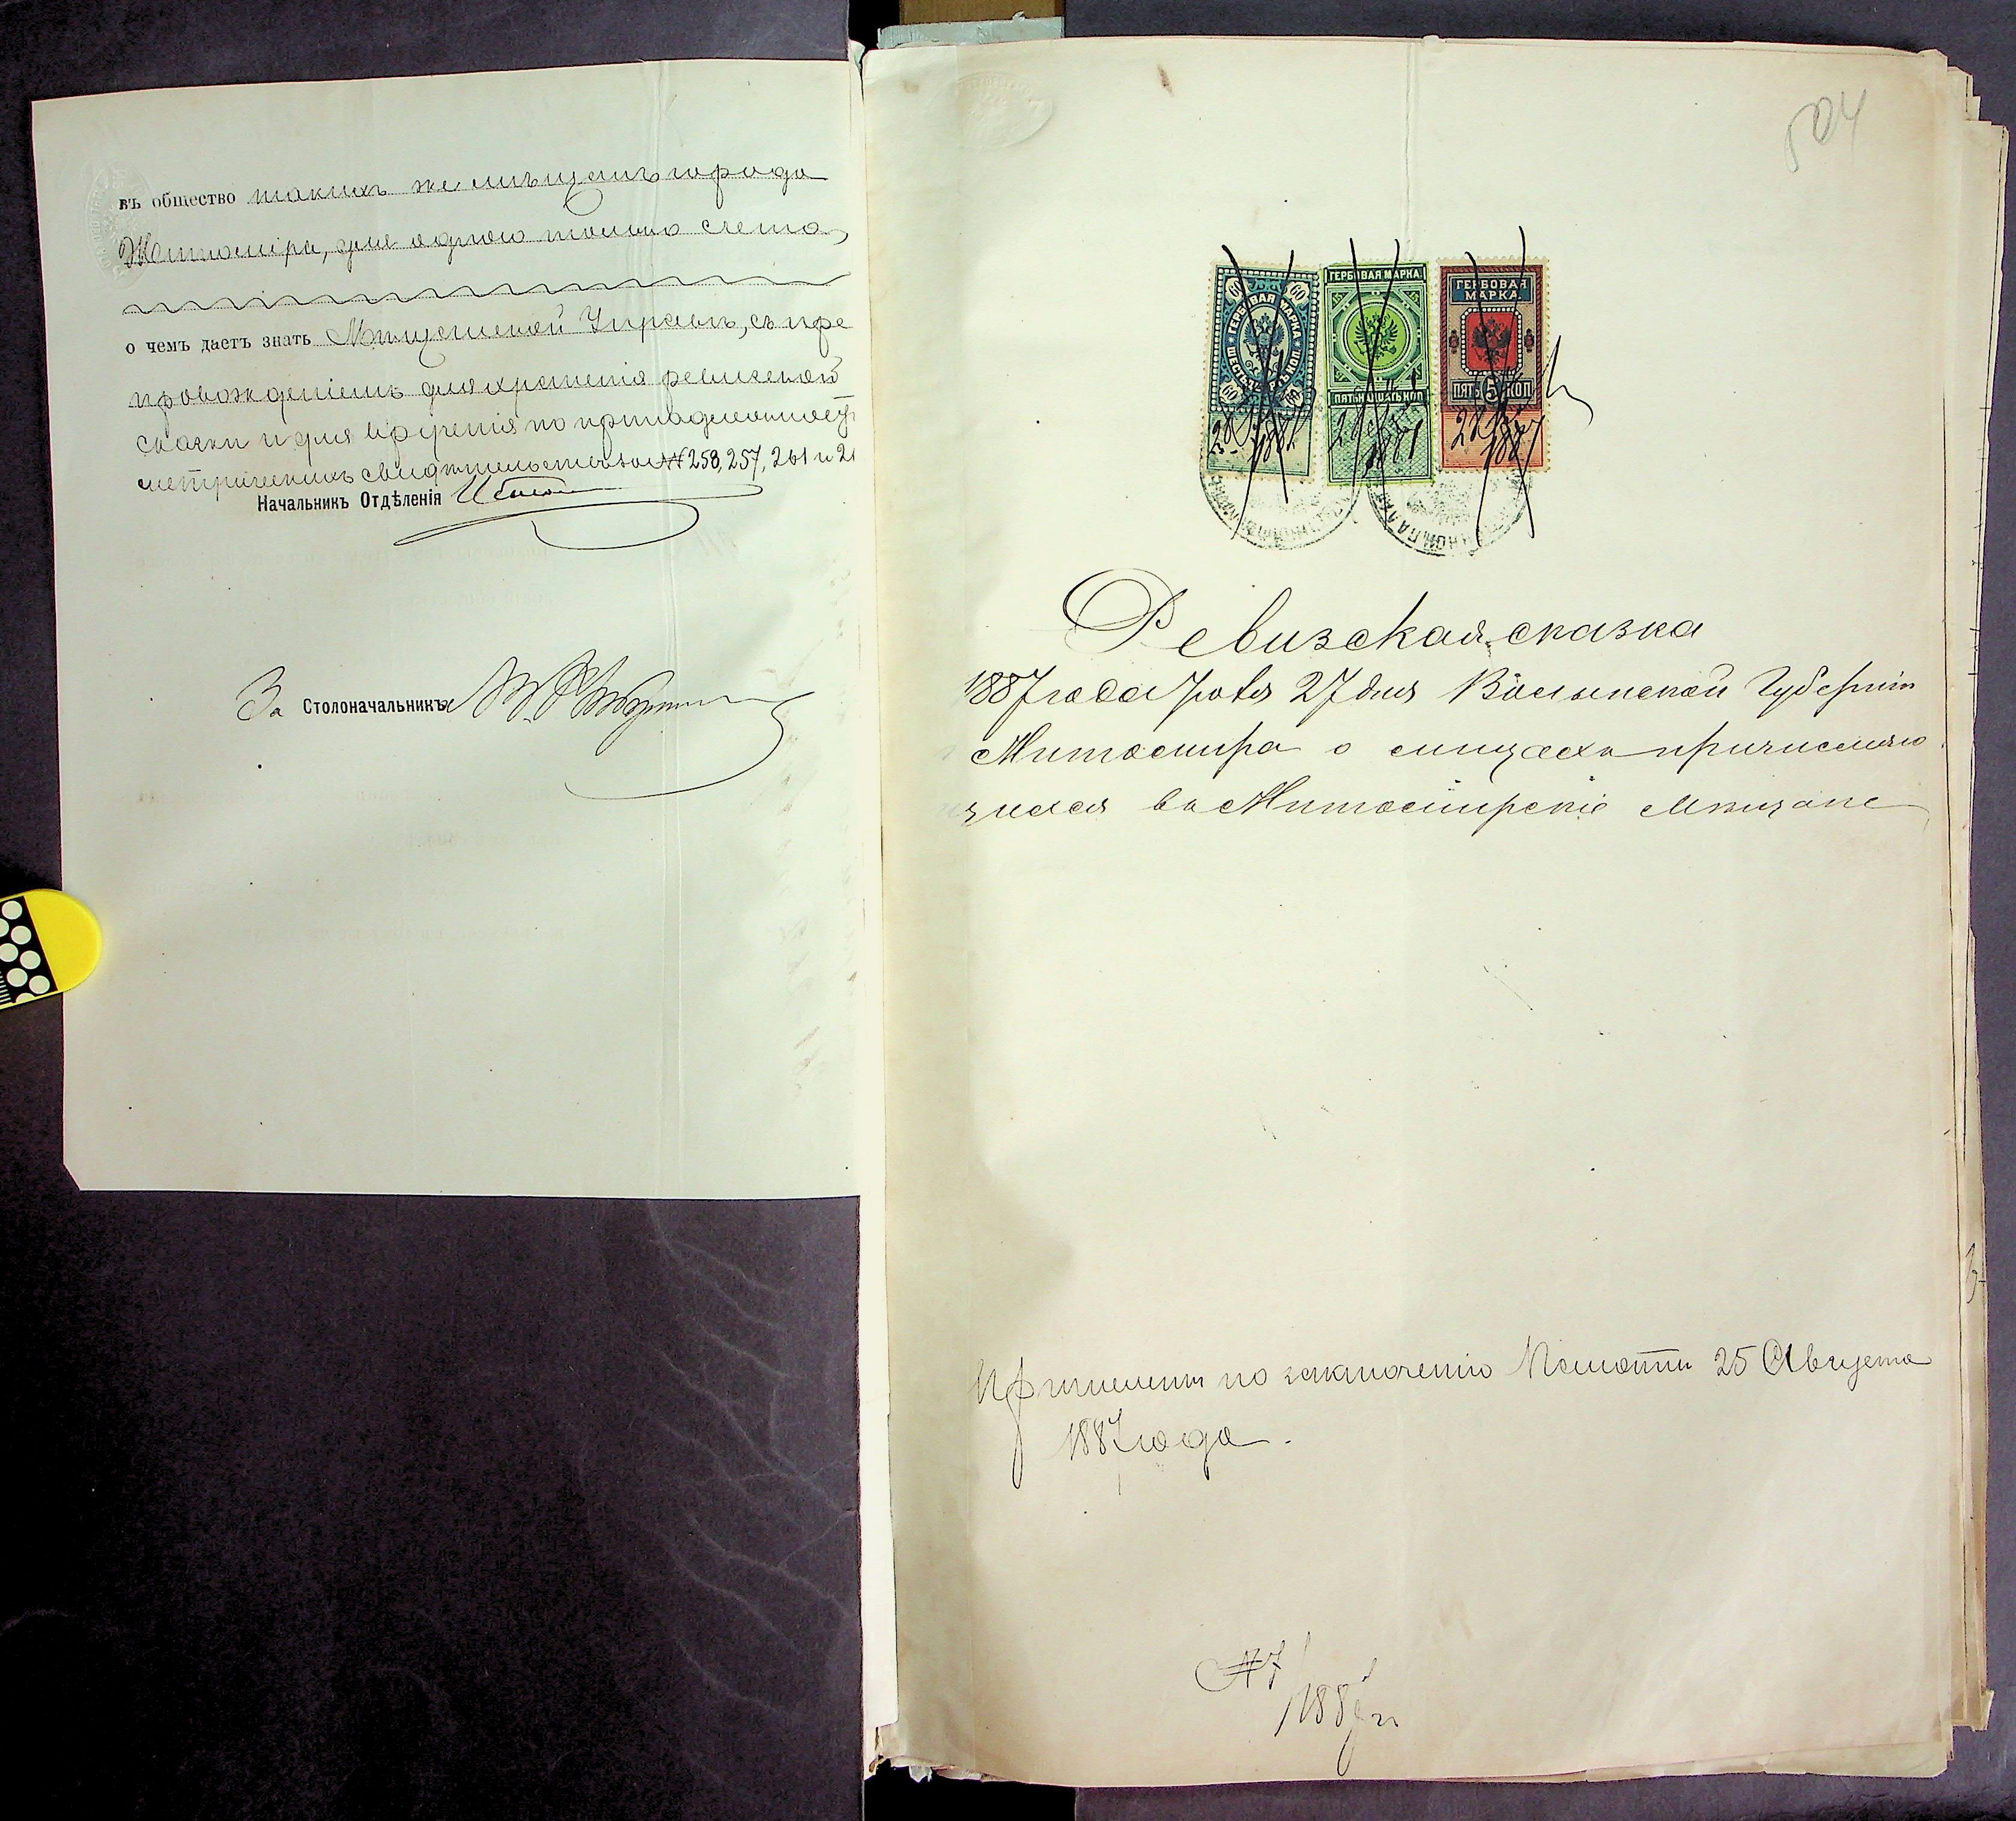 въ общество такихъ же мѣщанъ города
Житомира, для одного только счета,
о чемъ даетъ знать Мѣщанской Управѣ, съ пре
провожденіемъ для храненія ревизской
сказки и для врученія по принадлежности
метрическихъ свидѣтельствъ за № 258, 257, 261 и 2
Начальникъ Отдѣленія
За Столоначальника
504
60 60
ГЕРБОВАЯ МАРКА
ШЕСТЬДЕСЯТЪ КОП
60 60
28
1887
ГЕРБОВАЯ МАРКА
ПЯТЬНАДЦАТЬ КОП
28
1887
ГЕРБОВАЯ
МАРКА
ПЯТЬ 5 КОП
28
1887
Ревизская сказка
1887 года Іюля 27 дня Волынской Губерніи
Житомира о лицахъ причисляю
щихся въ Житомирскіе Мѣщане
Причислены по заключенію Палаты 25 Августа
1887 года.
№ 7
1887 г